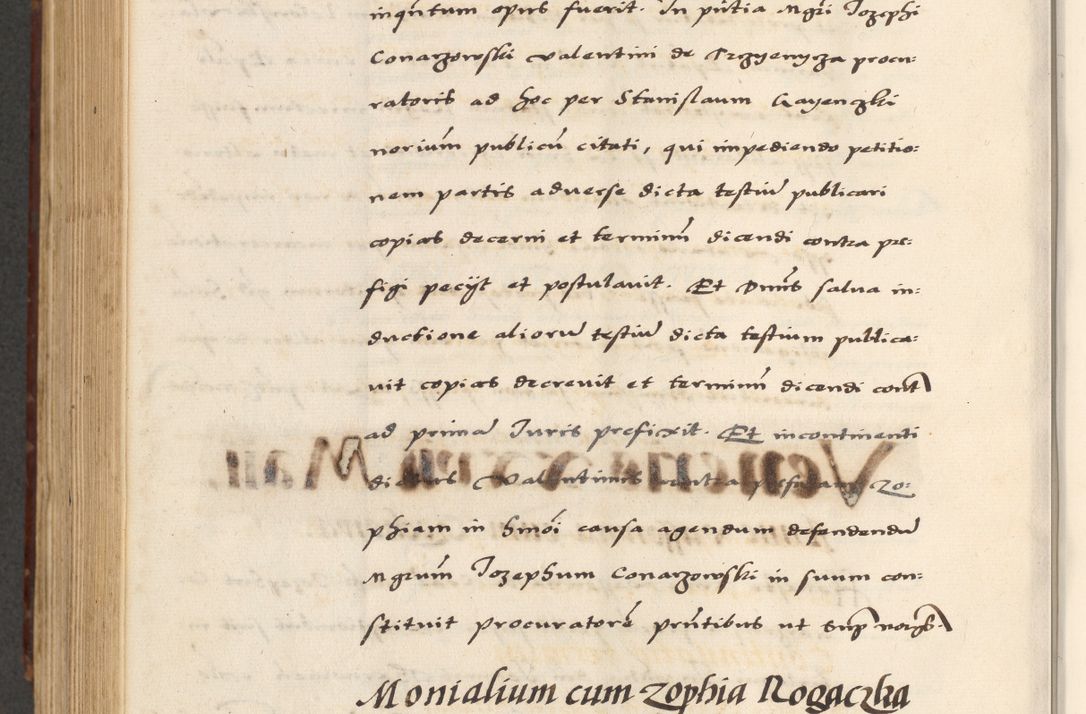 inqntum opus fuerit. In pntia Mgri Jozephi
Conarzowski Valentini de Trzyenycza procu:
ratoris ad hoc per Stanislaum Gayenczki
norium publicu citati, qui impediendo petitio:
nem partis adverse dicta testiu publicari
copias decerni et terminu dicendi contra pre:
figi pecijt et postulavit. Et Dnus salva in:
ductione alioru testiu dicta testium publica:
vit copias decrevit et terminu dicendi cont
ad prima Juris prefixit. Et incontinenti
dictus Valentinus contra prefatam Zo:
phiam in hmoi causa agendum defendendu
Mgrum Jozephum Conarzowski in suum con:
stituit procuratore pntibus ut sup
Monialium cum Zophia Rogaczka